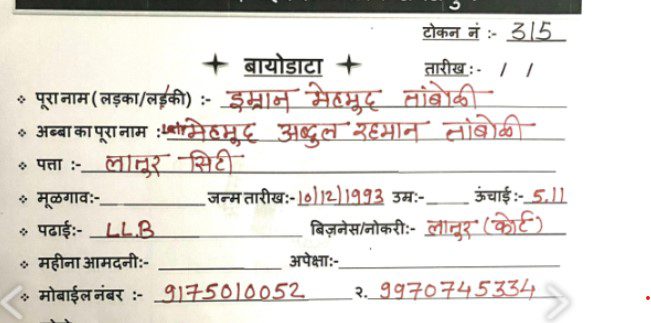 टोकन नं :- 315
बायोडाटा
तारीख :- / /
पूरा नाम (लड़का/लड़की) :- इम्रान मेहमुद तांबोळी
अब्बा का पूरा नाम :- Late मेहमुद अब्दुल रहमान तांबोळी
पत्ता :- लातूर सिटी
मूळगाव:- जन्म तारीख:- 10/12/1993 उम्र:- ऊंचाई :- 5.11
पढाई:- LL.B बिज़नेस/नोकरी:- लातूर (कोर्ट)
महीना आमदनी:- अपेक्षा:-
मोबाईल नंबर :- 9175010052 २. 9970745334